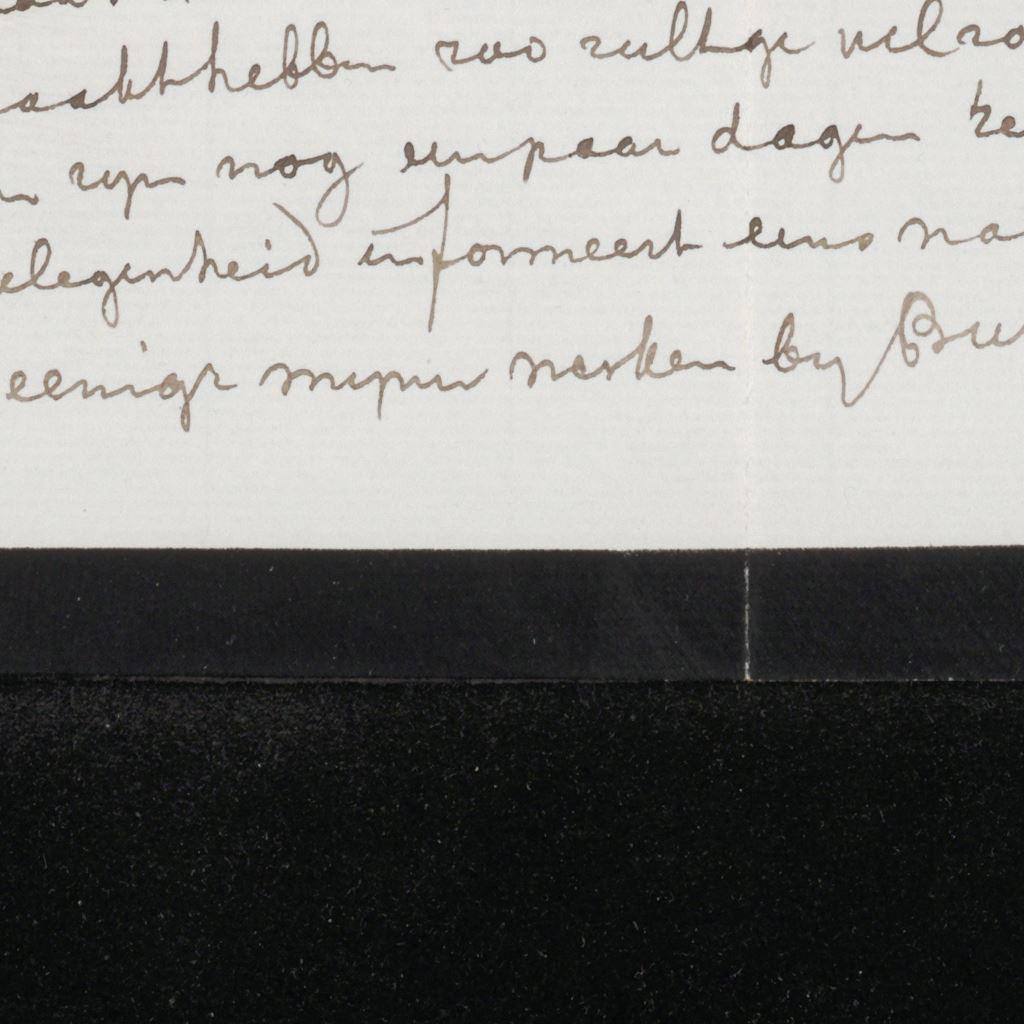 aakt hebben zoo zultge wel zo
n zyn nog een paar dagen te
elegenheid informeert eens na
eenige mijner werken by Bu